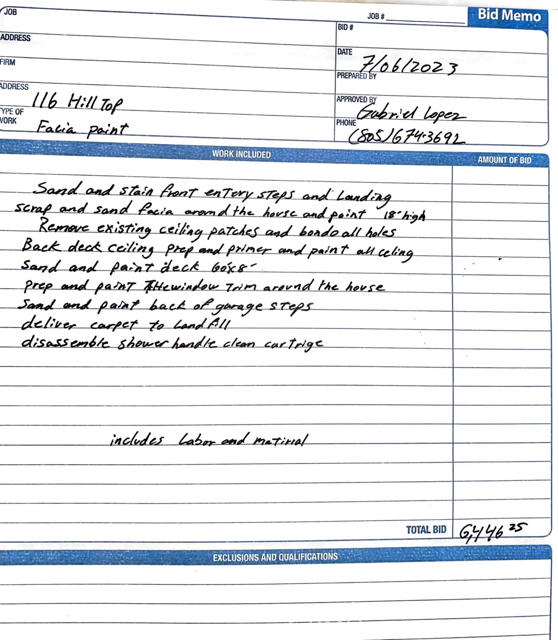 JOB
JOB #
Bid Memo
BID #
ADDRESS
DATE
7/06/2023
FIRM
PREPARED BY
ADDRESS
116 Hill Top
APPROVED BY
Gabriel Lopez
TYPE OF
WORK
Facia paint
PHONE
(805)674-3692
WORK INCLUDED
AMOUNT OF BID
Sand and stain front entery steps and Landing
scrap and sand facia around the house and paint 18' high
Remove existing ceiling patches and bondo all holes
Back deck ceiling prep and primer and paint all celing
Sand and paint deck 60x8'
prep and paint The window trim around the house
Sand and paint back of garage steps
deliver carpet to Landfill
disassemble shower handle clean cartrige
includes Labor and matirial
TOTAL BID 6,446 25
EXCLUSIONS AND QUALIFICATIONS